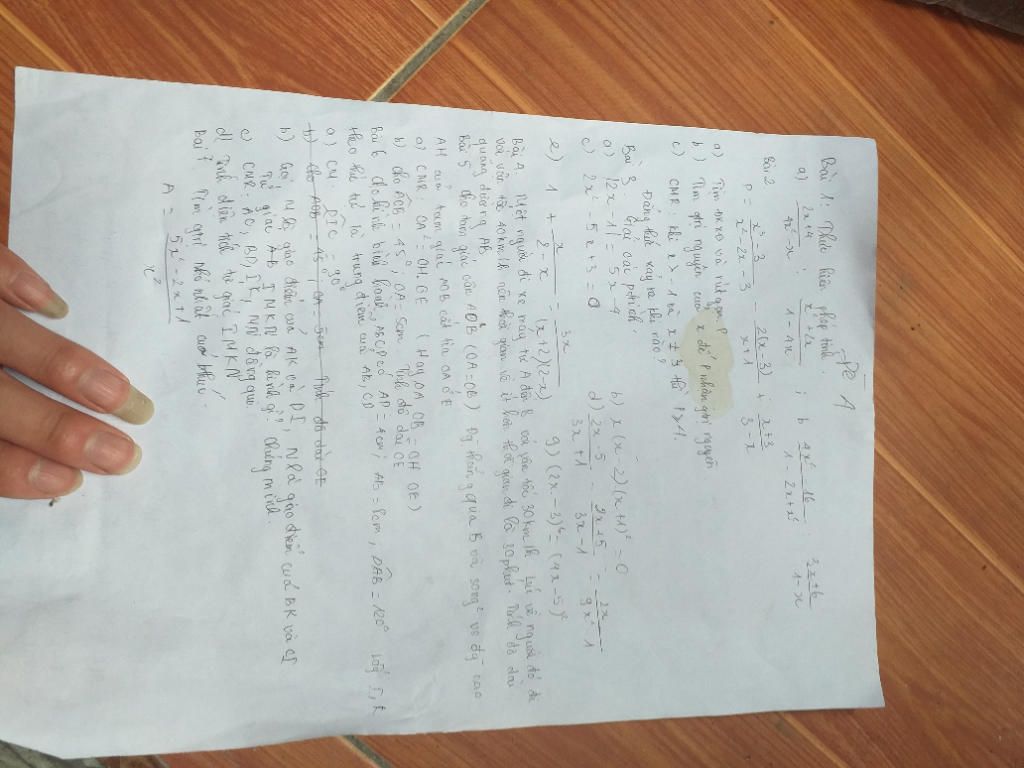 Đề 1
Bài 1: Thực hiện phép tính.
a) \frac{2x+4}{4x^2-x} ; \frac{x^2+2x}{1-4x} ; b \frac{4x^2-16}{1-2x+x^2} . \frac{3x+6}{1-x}
Bài 2
P = \frac{x^2-3}{x^2-2x-3} - \frac{2(x-3)}{x+1} + \frac{x+3}{3-x}
a) Tìm ĐKXĐ và rút gọn P
b) Tìm gtrị nguyên của x để P nhận gtrị nguyên
c) CMR: khi x > -1 và x ≠ 3 thì P ≥ 4.
Đẳng thức xảy ra khi nào?
Bài 3 Giải các pt
a) |2x-1| = 5x-4 b) x(x-2)(x+1)^2 = 0
c) 2x^2-5x+3 = 0 d) \frac{2x-5}{3x+1} - \frac{9x+5}{3x-1} = \frac{2x}{9x^2-1}
e) 1 + \frac{x}{2-x} = \frac{3x}{(x+2)(2-x)} g) (2x-3)^2 = (4x-5)^2
Bài 4. Một người đi xe máy từ A đến B với vận tốc 30km/h. Lúc về người đó đi
với vận tốc 40km/h nên thời gian về ít hơn thời gian đi là 30 phút. Tính độ dài
quãng đường AB
Bài 5 cho tam giác cân AOB (OA=OB) Đg thẳng qua B và song^2 với đg cao
AH của tam giác AOB cắt tia OA ở E
a) CMR: OA^2 = OH.OE (Hay OA.OB = OH.OE)
b) cho = 45°, OA = 5cm. Tính độ dài OE
Bài 6 cho hình bình hành ABCD có AD = 4cm, AB = 8cm, DAB = 120° I, K
theo thứ tự là trung điểm của AB, CD
a) CM: DIC = 90°
b) cho AOB = 45°; OA = 5cm Tính độ dài OE
b) Gọi M là giao điểm của AK và DI, N là giao điểm của BK và CI
Tứ giác IMKN là hình gì? Chứng minh.
c) CMR: AC, BD, IK, MN đồng qui
d) Tính diện tích tứ giác IMKN
Bài 7 Tìm gtrị nhỏ nhất của bthức:
A = \frac{5x^2-2x+1}{x^2}